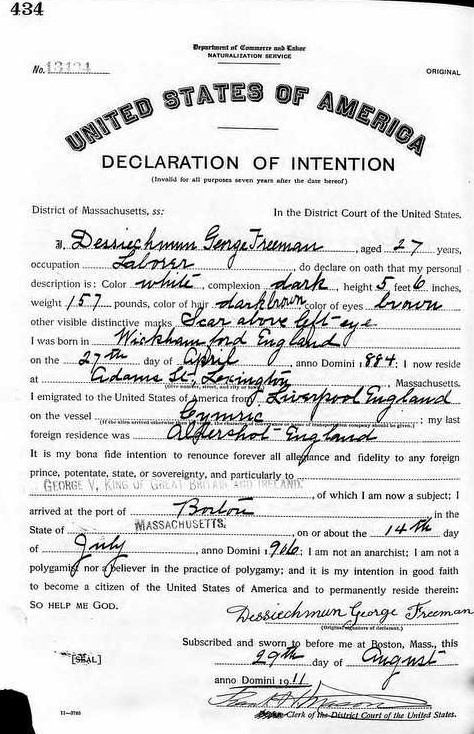 434
Department of Commerce and Labor
NATURALIZATION SERVICE
No. ORIGINAL
UNITED STATES OF AMERICA
DECLARATION OF INTENTION
(Invalid for all purposes seven years after the date hereof)
District of Massachusetts, ss: In the District Court of the United States.
I, Dessiechmun George Freeman, aged 27 years,
occupation Laborer, do declare on oath that my personal
description is: Color white, complexion dark, height 5 feet 6 inches,
weight 157 pounds, color of hair dark brown color of eyes brown
other visible distinctive marks Scar above left eye
I was born in Wickhamford England
on the 27th day of April, anno Domini 1884; I now reside
at Adams St. Lexington, Massachusetts.
(Give number, street, city or town)
I emigrated to the United States of America from Liverpool England
on the vessel Cymric; my last
(If the alien arrived otherwise than by vessel, the character of conveyance or name of transportation company should be given.)
foreign residence was Aldershot England
It is my bona fide intention to renounce forever all allegiance and fidelity to any foreign
prince, potentate, state, or sovereignty, and particularly to
GEORGE V, KING OF GREAT BRITAIN AND IRELAND.
, of which I am now a subject; I
arrived at the port of Boston in the
State of MASSACHUSETTS, on or about the 14th day
of July, anno Domini 1906; I am not an anarchist; I am not a
polygamist nor a believer in the practice of polygamy; and it is my intention in good faith
to become a citizen of the United States of America and to permanently reside therein:
SO HELP ME GOD.
Dessiechmun George Freeman
(Original signature of declarant.)
Subscribed and sworn to before me at Boston, Mass., this
[SEAL] 29th day of August
anno Domini 1911
Clerk of the District Court of the United States.
11—3785